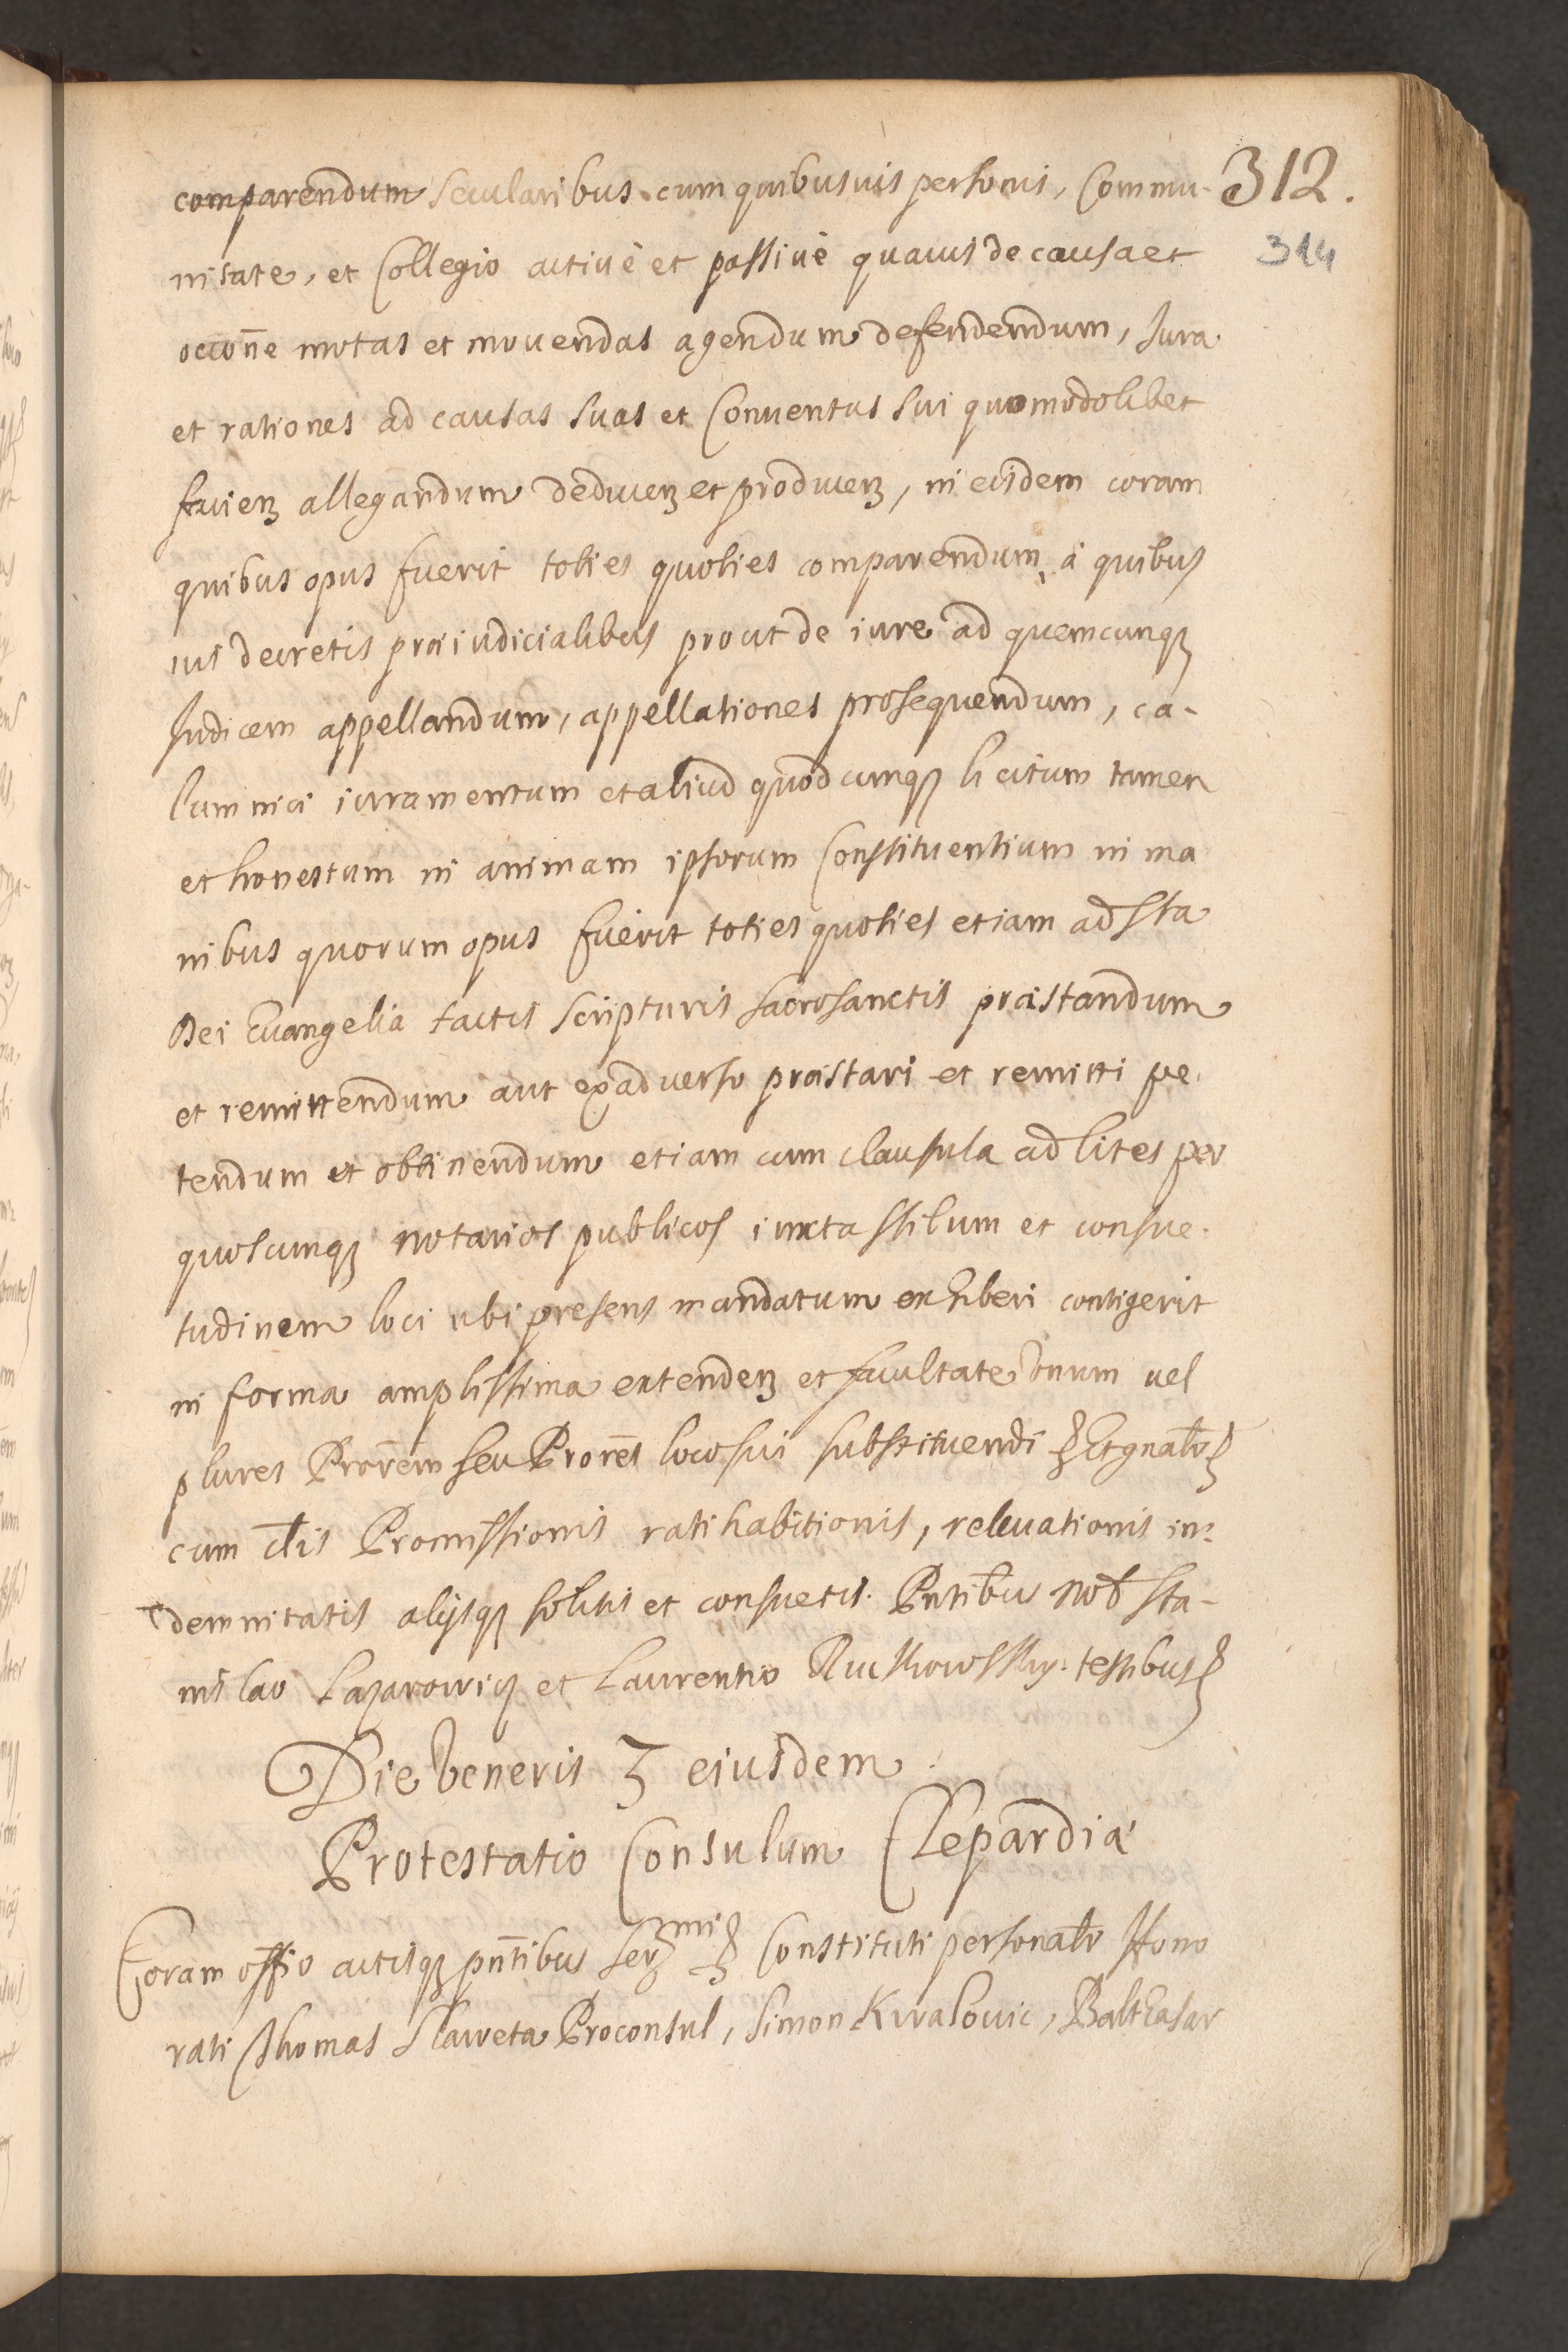 comparendum secularibus cum quibusuis personis, Commu- 312.
nitate, et Collegio actiuè et passiuè quauis de causa et 314
occōne motas et mouendas agendum defendendum, Iura
et rationes ad causas suas et Conuentus sui quomodolibet
allegandum deducenȝ et producenȝ, in eisdem coram
quibus opus fuerit toties quoties comparendum, à quibus
uis decretis præiudicialibus prout de iure ad quemcunqȝ
Iudicem appellandum, appellationes prosequendum, ca-
lumniæ iuramentum et aliud quodcunqȝ licitum tamen
et honestum in animam ipsorum Constituentium in ma
nibus quorum opus fuerit toties quoties etiam ad Sta
Dei Euangelia tactis scripturis sacrosanctis præstandum
et remittendum aut ex aduerso præstari et remitti pe-
tendum et obtinendum etiam cum clausula ad lites per
quoscunqȝ notarios publicos iuxta stilum et consue-
tudinem loci ubi presens mandatum exhiberi contigerit
in forma amplissima extendenȝ et facultate vnum uel
plures Prorēm seu Prorēs loco sui substituendi Et gnalr
cum cłis Promissionis ratihabitionis, releuationis in-
demnitatis alijsqȝ solitis et consuetis. Pntibus nob Sta-
nislao Lazarowicz et Laurentio testibus
Die Veneris 3 eiusdem
Protestatio Consulum Clepardiæ
Coram offio actisqȝ pn̄tibus Constituti personalr Hono
rati Thomas Slaweta Proconsul, Simon Kwalouic, Balthasar